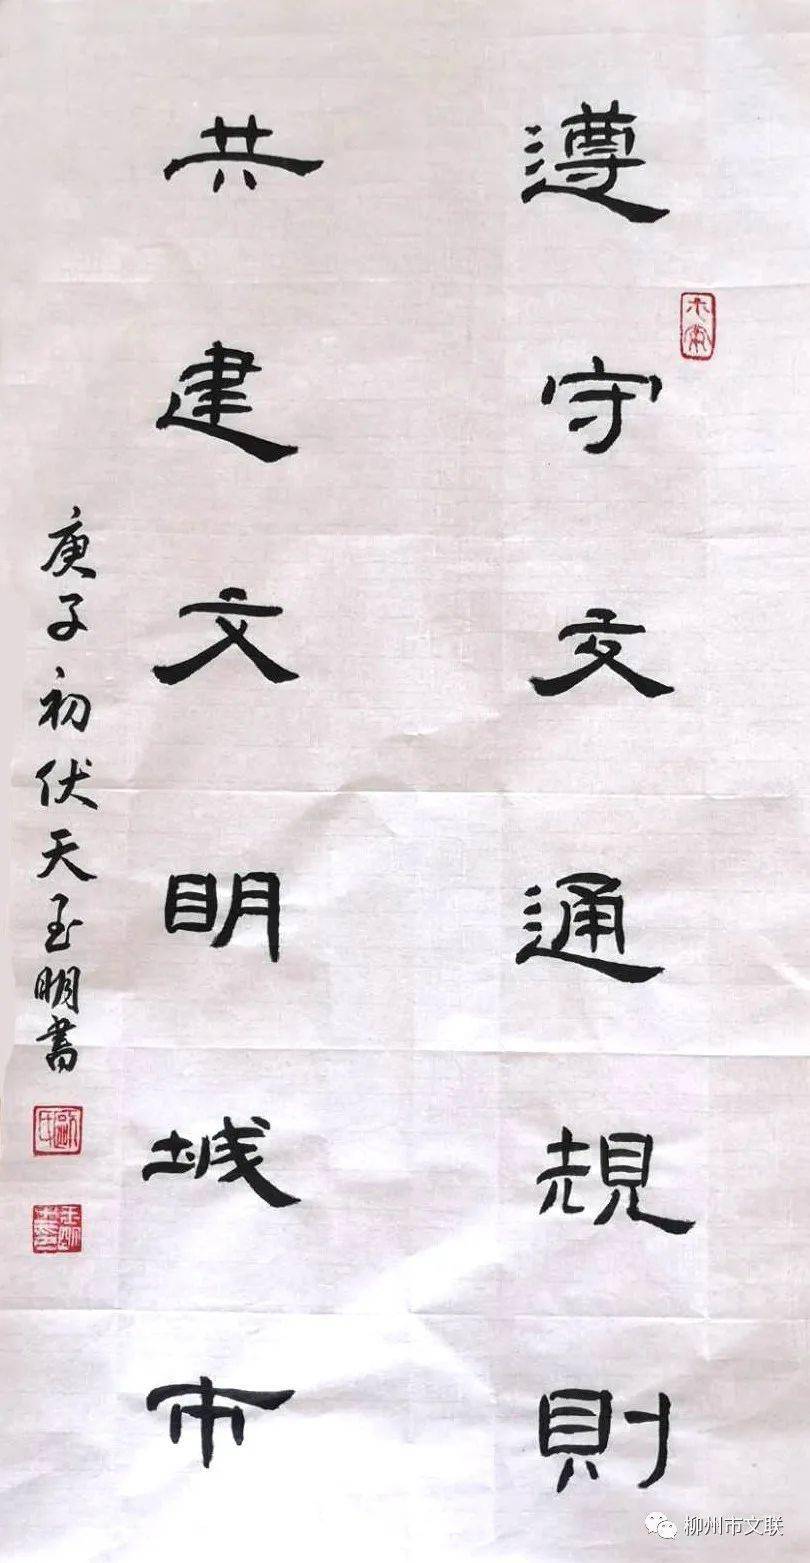 遵守交通規則
共建文明城市
庚子初伏天玉明書
柳州市文联